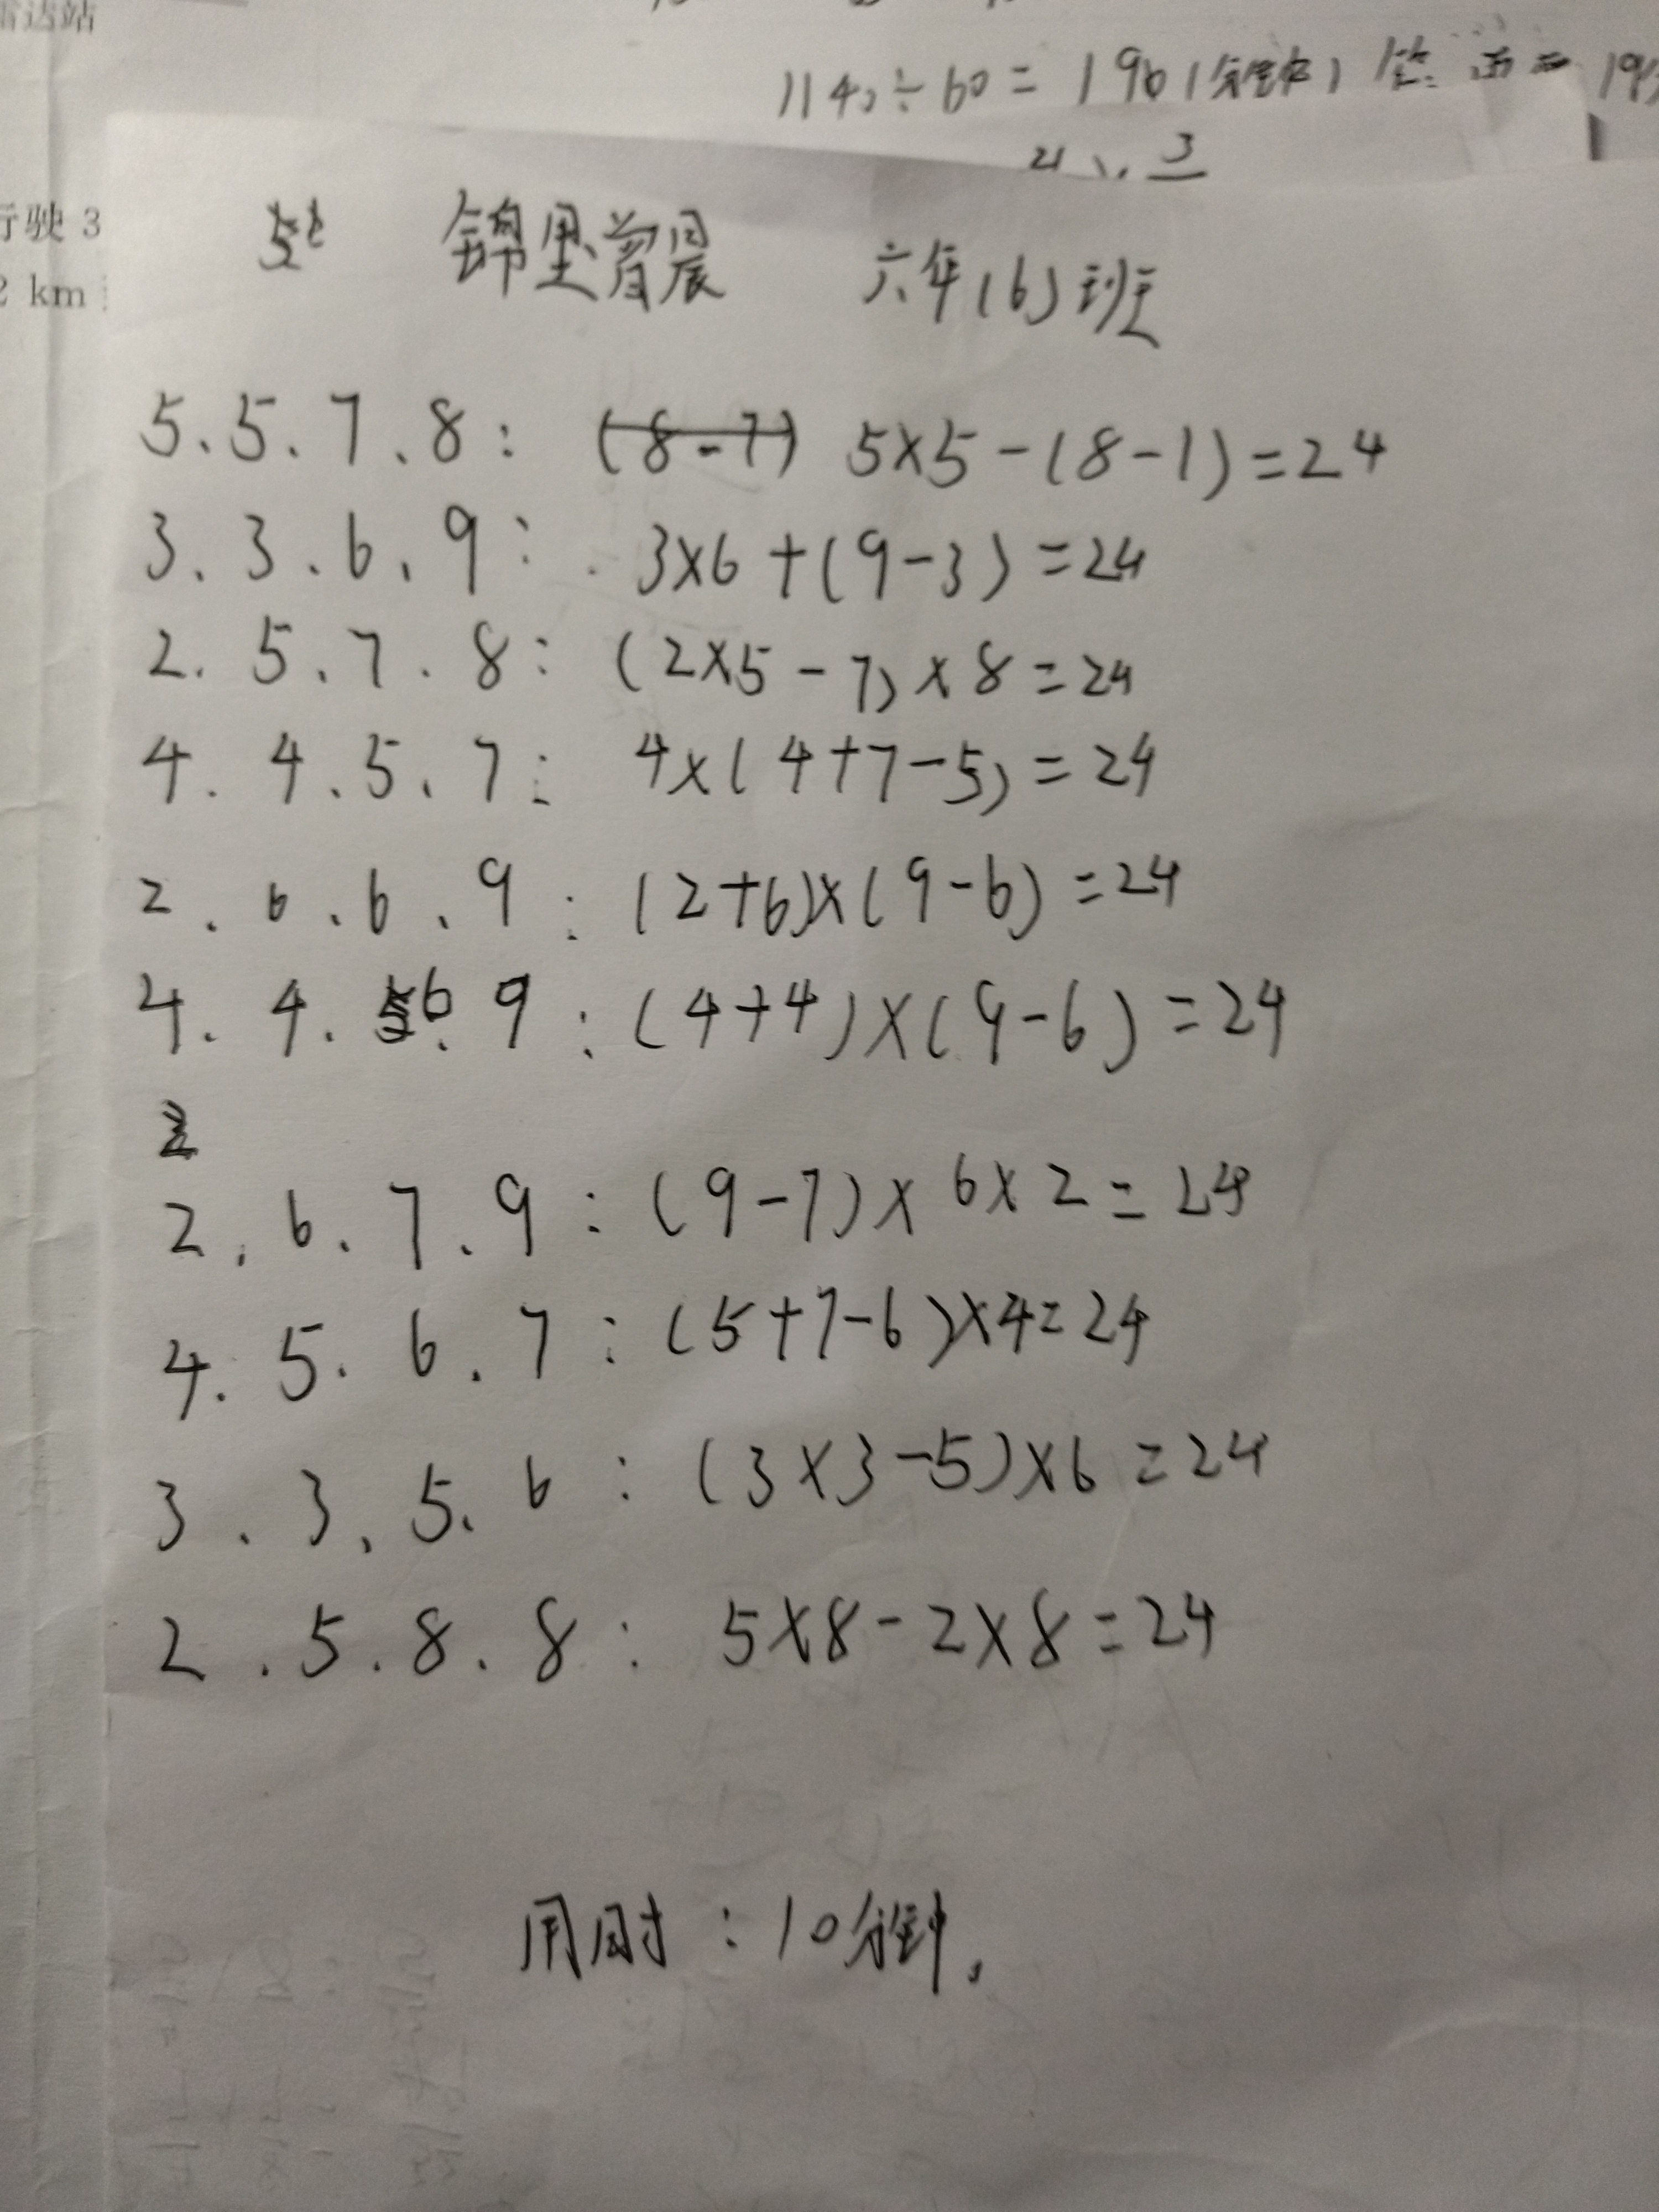 雷达站
1140÷60=190(分钟) 答:
行驶 3
2 km
锦里曾晨 六年(6)班
5.5.7.8: (8-7) 5×5-(8-7)=24
3.3.6.9: 3×6+(9-3)=24
2.5.7.8: (2×5-7)×8=24
4.4.5.7: 4×(4+7-5)=24
2.6.6.9: (2+6)×(9-6)=24
4.4.6.9: (4+4)×(9-6)=24
2.6.7.9: (9-7)×6×2=24
4.5.6.7: (5+7-6)×4=24
3.3.5.6: (3×3-5)×6=24
2.5.8.8: 5×8-2×8=24
用时:10分钟.